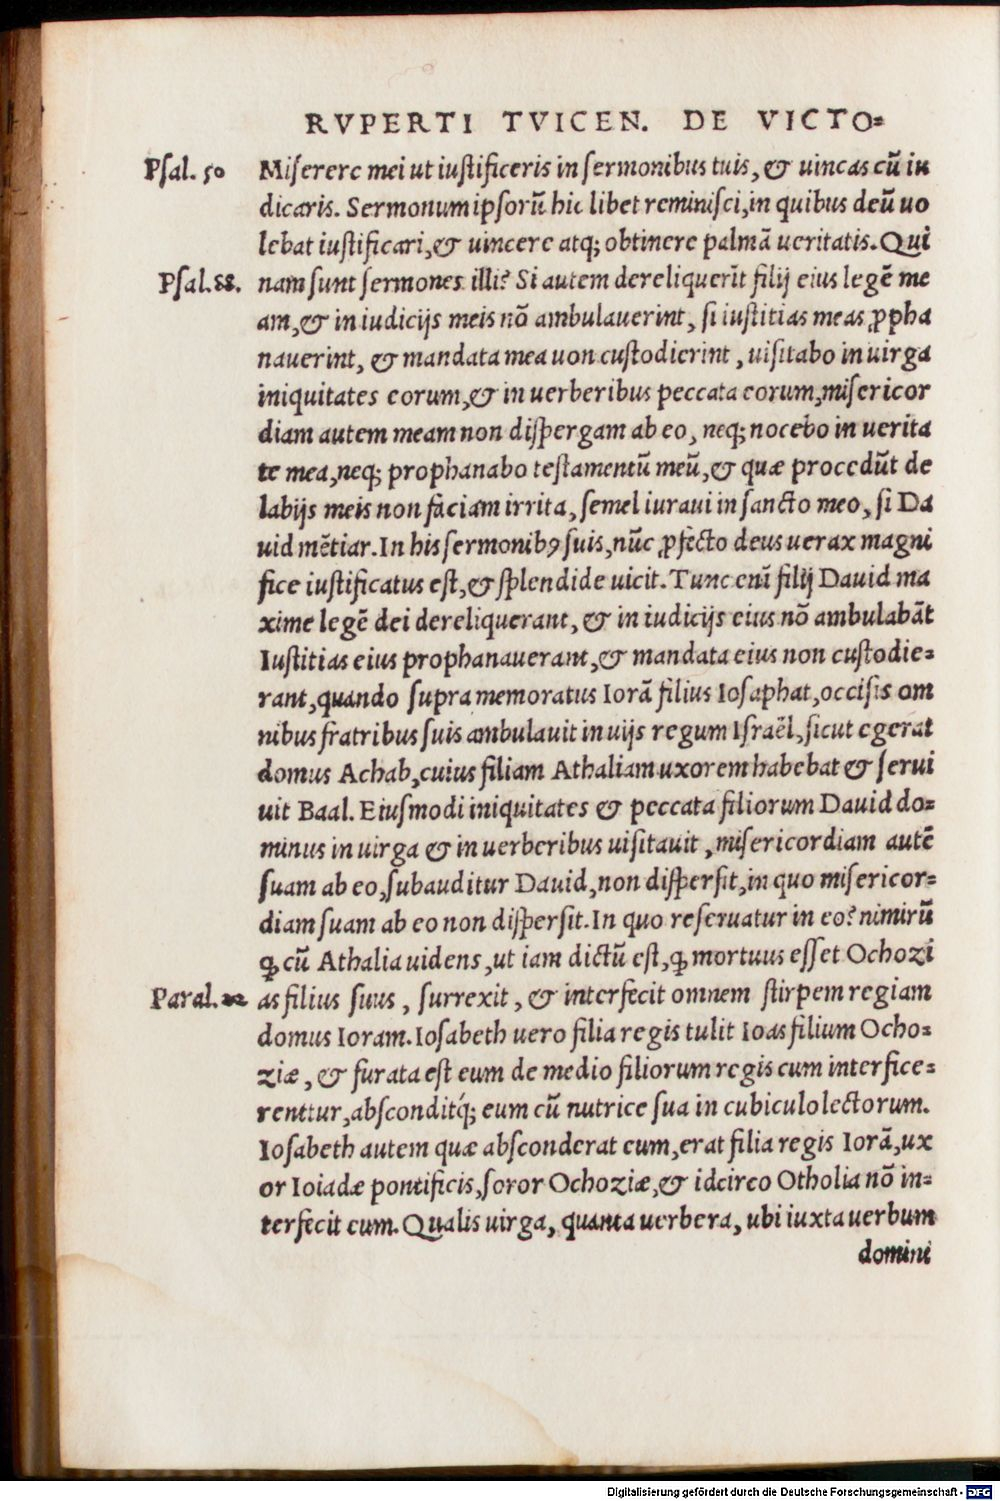 RVPERTI TVICEN. DE VICTO=
Psal. 50
Miserere mei ut iustificeris in sermonibus tuis, & uincas cū iu
dicaris. Sermonum ipsorū hic libet reminisci, in quibus deū uo
lebat iustificari, & uincere atq; obtinere palmā ueritatis. Qui
Psal. 88.
nam sunt sermones illi? Si autem dereliquerīt filij eius legē me
am, & in iudicijs meis nō ambulauerint, si iustitias meas ꝓpha
nauerint, & mandata mea uon custodierint, uisitabo in uirga
iniquitates eorum, & in uerberibus peccata eorum, misericor
diam autem meam non dispergam ab eo, neq; nocebo in uerita
te mea, neq; prophanabo testamentū meū, & quæ procedūt de
labijs meis non faciam irrita, semel iuraui in sancto meo, si Da
uid mētiar. In his sermonibꝰ suis, nūc ꝓfecto deus uerax magni
fice iustificatus est, & splendide uicit. Tunc enī filij Dauid ma
xime legē dei dereliquerant, & in iudicijs eius nō ambulabāt
Iustitias eius prophanauerant, & mandata eius non custodie=
rant, quando supra memoratus Iorā filius Iosaphat, occisis om
nibus fratribus suis ambulauit in uijs regum Israël, sicut egerat
domus Achab, cuius filiam Athaliam uxorem habebat & serui
uit Baal. Eiusmodi iniquitates & peccata filiorum Dauid do=
minus in uirga & in uerberibus uisitauit, misericordiam autē
suam ab eo, subauditur Dauid, non dispersit, in quo misericor=
diam suam ab eo non dispersit. In quo reseruatur in eo? nimirū
ꝙ cū Athalia uidens, ut iam dictū est, ꝙ mortuus esset Ochozi
Paral. 22
as filius suus, surrexit, & interfecit omnem stirpem regiam
domus Ioram. Iosabeth uero filia regis tulit Ioas filium Ocho=
ziæ, & furata est eum de medio filiorum regis cum interfice=
renttur, absconditq́; eum cū nutrice sua in cubiculo lectorum.
Iosabeth autem quæ absconderat eum, erat filia regis Iorā, ux
or Ioiadæ pontificis, soror Ochoziæ, & idcirco Otholia nō in=
terfecit eum. Qualis uirga, quanta uerbera, ubi iuxta uerbum
domini
Digitalisierung gefördert durch die Deutsche Forschungsgemeinschaft - DFG